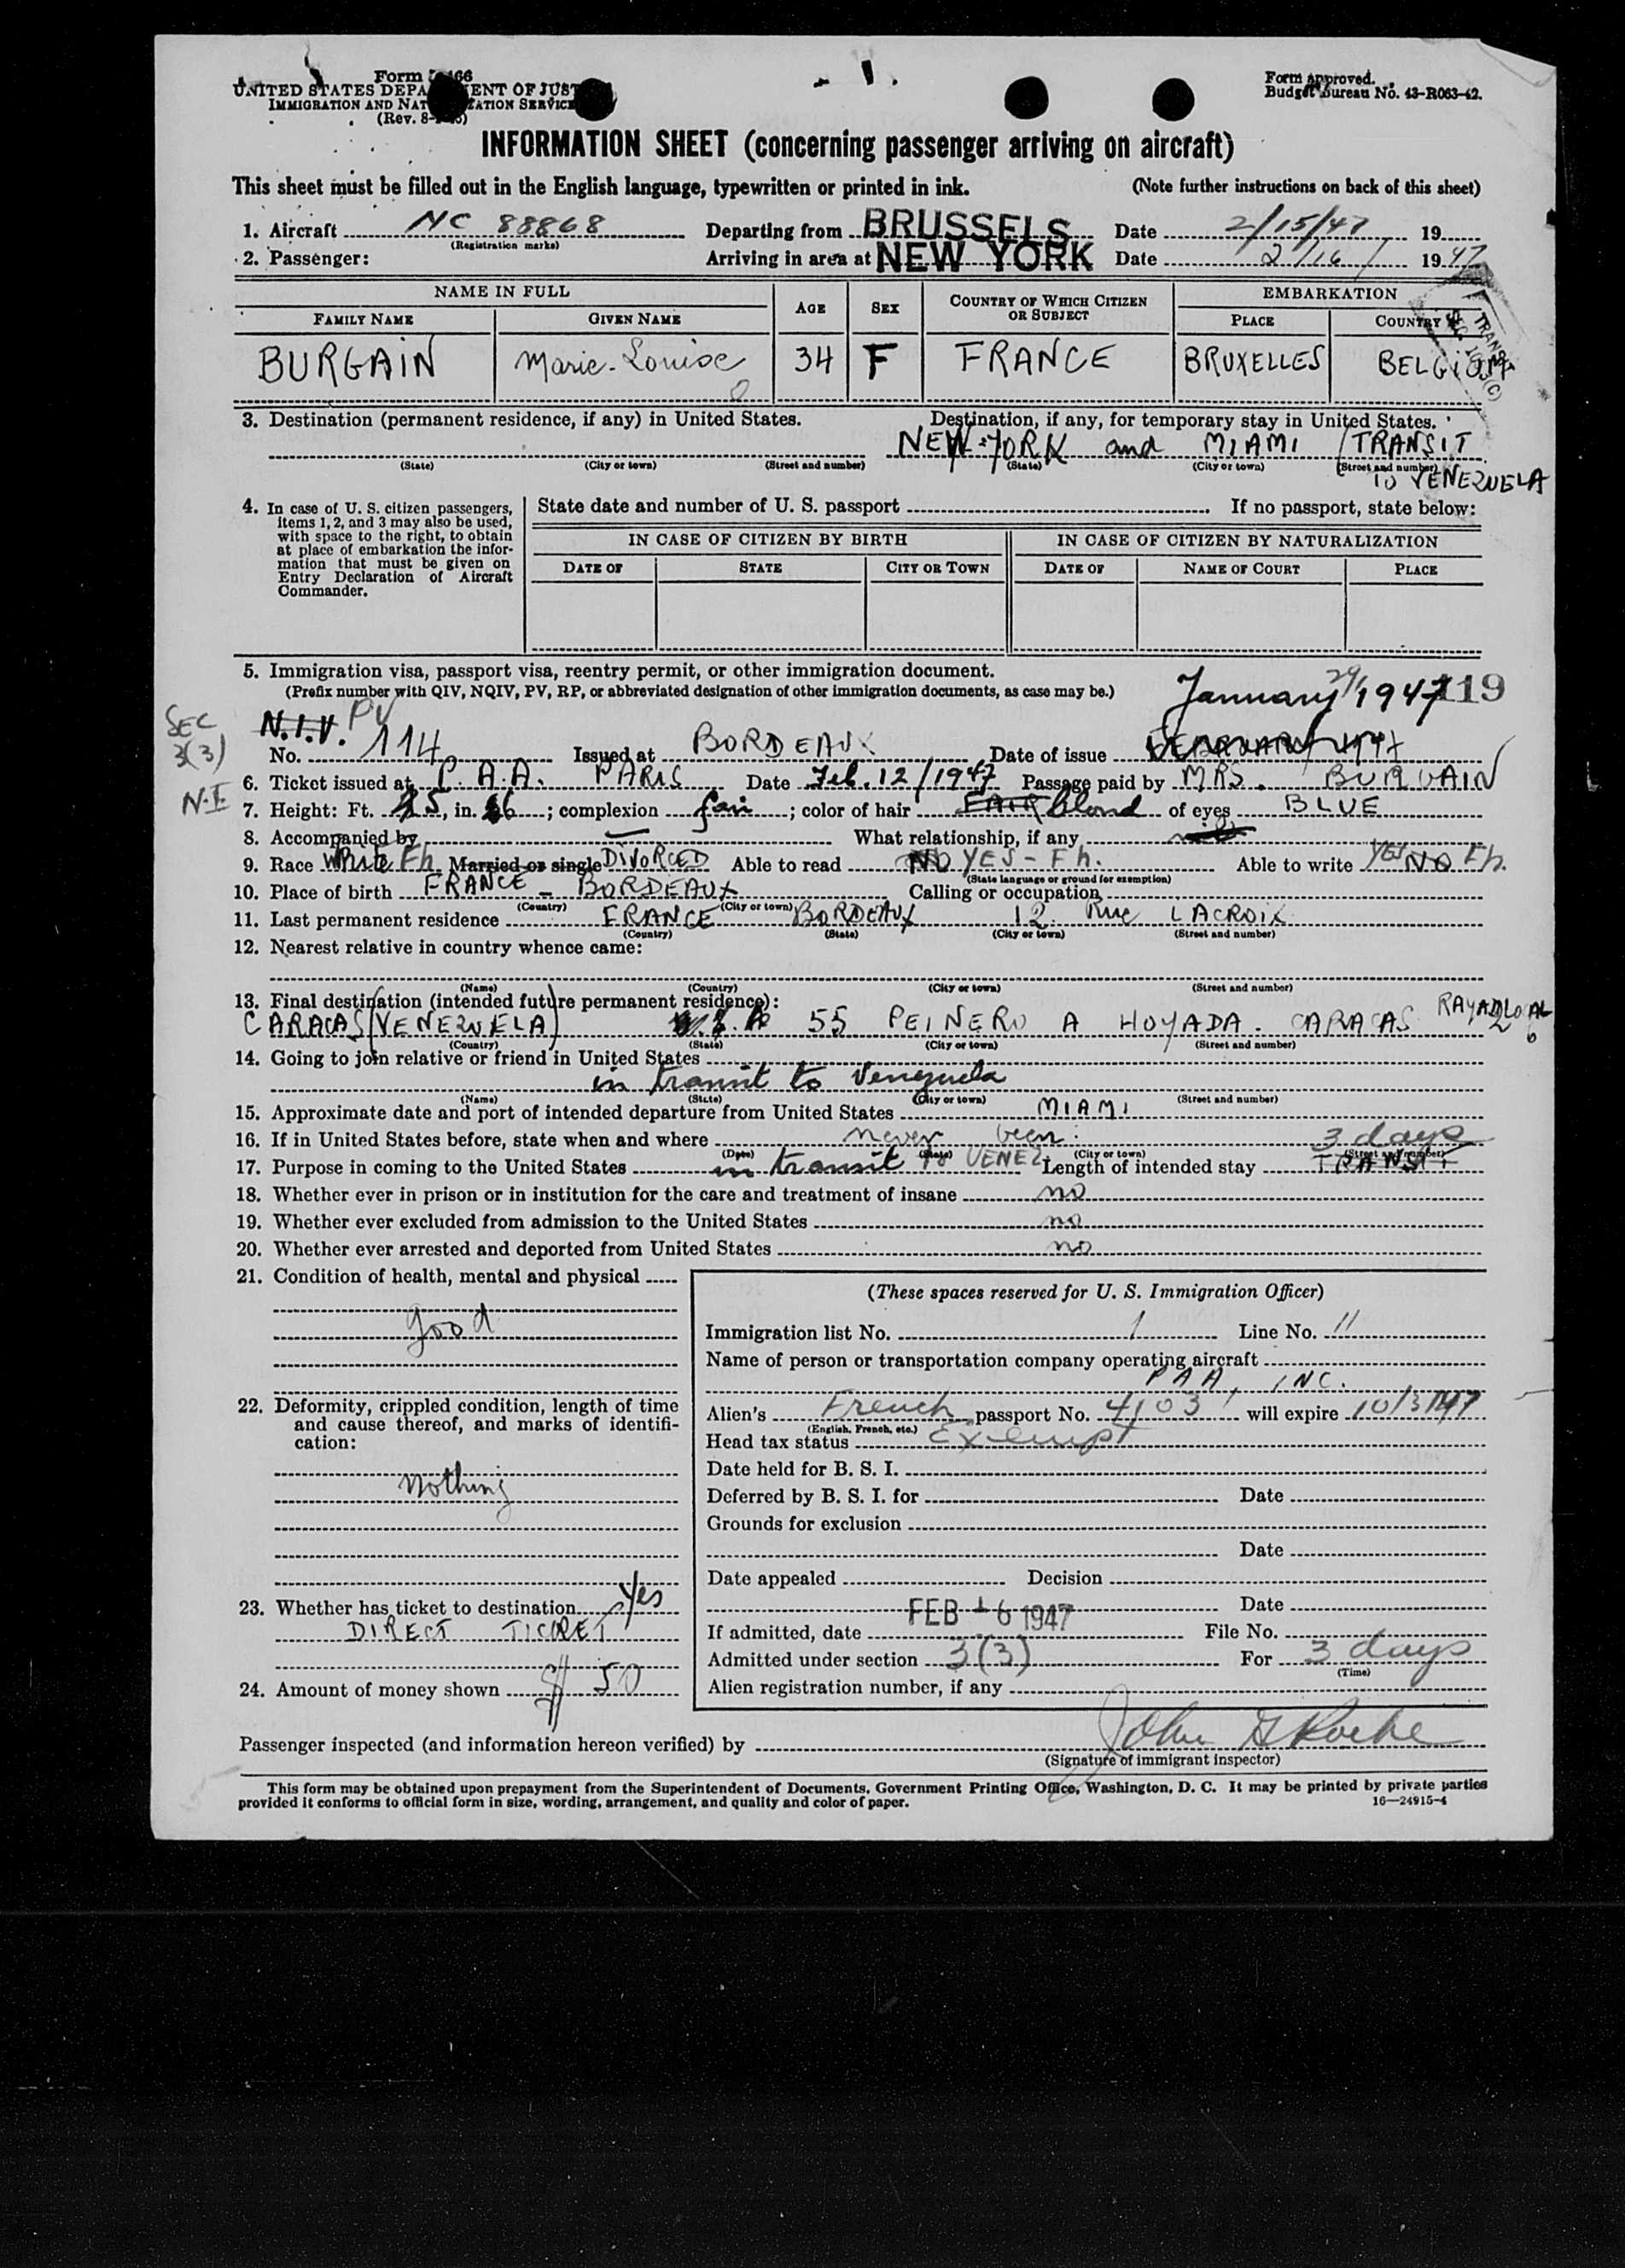 Form
UNITED STATES DEPARTMENT OF JUSTICE
IMMIGRATION AND NATURALIZATION SERVICE
(Rev. 8-
Form approved.
Budget Bureau No. 43-R063-42.
INFORMATION SHEET (concerning passenger arriving on aircraft)
This sheet must be filled out in the English language, typewritten or printed in ink. (Note further instructions on back of this sheet)
1. Aircraft NC 88868 Departing from BRUSSELS Date 2/15/47 19
(Registration marks)
2. Passenger: Arriving in area at NEW YORK Date 2/16/ 1947
NAME IN FULL AGE SEX COUNTRY OF WHICH CITIZEN OR SUBJECT EMBARKATION
FAMILY NAME GIVEN NAME PLACE COUNTRY
BURGAIN Marie-Louise 34 F FRANCE BRUXELLES BELGIUM
3. Destination (permanent residence, if any) in United States. Destination, if any, for temporary stay in United States.
NEW-YORK and MIAMI TRANSIT
(State) (City or town) (Street and number) (State) (City or town) (Street and number)
to VENEZUELA
4. In case of U. S. citizen passengers, items 1, 2, and 3 may also be used, with space to the right, to obtain at place of embarkation the information that must be given on Entry Declaration of Aircraft Commander.
State date and number of U. S. passport If no passport, state below:
IN CASE OF CITIZEN BY BIRTH IN CASE OF CITIZEN BY NATURALIZATION
DATE OF STATE CITY OR TOWN DATE OF NAME OF COURT PLACE
5. Immigration visa, passport visa, reentry permit, or other immigration document.
(Prefix number with QIV, NQIV, PV, RP, or abbreviated designation of other immigration documents, as case may be.)
January 29/1947 119
SEC 3(3)
N.I.V. PV
No. 114 Issued at BORDEAUX Date of issue
6. Ticket issued at P.A.A. PARIS Date Feb. 12/1947 Passage paid by MRS. BURGAIN
N.I
7. Height: Ft. 5, in. 6; complexion fair; color of hair FAIR blond of eyes BLUE
8. Accompanied by What relationship, if any
9. Race White Fh. Married or single DIVORCED Able to read NO YES - Fh. Able to write YES NO Fh.
(State language or ground for exemption)
10. Place of birth FRANCE - BORDEAUX Calling or occupation
(Country) (City or town)
11. Last permanent residence FRANCE BORDEAUX 12. Rue LACROIX
(Country) (State) (City or town) (Street and number)
12. Nearest relative in country whence came:
(Name) (Country) (City or town) (Street and number)
13. Final destination (intended future permanent residence):
CARACAS (VENEZUELA) 55 PEINERO A HOYADA. CARACAS
(Country) (State) (City or town) (Street and number)
14. Going to join relative or friend in United States
in transit to Venezuela
(Name) (State) (City or town) (Street and number)
15. Approximate date and port of intended departure from United States MIAMI
16. If in United States before, state when and where never been. 3 days
(Date) (State) (City or town) (Street and number)
17. Purpose in coming to the United States in transit to VENEZ Length of intended stay TRANSIT
18. Whether ever in prison or in institution for the care and treatment of insane no
19. Whether ever excluded from admission to the United States no
20. Whether ever arrested and deported from United States no
21. Condition of health, mental and physical
good
22. Deformity, crippled condition, length of time and cause thereof, and marks of identification:
Nothing
23. Whether has ticket to destination Yes
DIRECT TICKET
24. Amount of money shown $ 50
(These spaces reserved for U. S. Immigration Officer)
Immigration list No. 1 Line No. 11
Name of person or transportation company operating aircraft
PAA, INC.
Alien's French passport No. 4103 will expire 10/3/47
(English, French, etc.)
Head tax status Exempt
Date held for B. S. I.
Deferred by B. S. I. for Date
Grounds for exclusion
Date
Date appealed Decision
Date
FEB 16 1947
If admitted, date File No.
Admitted under section 3(3) For 3 days
(Time)
Alien registration number, if any
Passenger inspected (and information hereon verified) by John G Roche
(Signature of immigrant inspector)
This form may be obtained upon prepayment from the Superintendent of Documents, Government Printing Office, Washington, D. C. It may be printed by private parties
provided it conforms to official form in size, wording, arrangement, and quality and color of paper. 16—24915-4